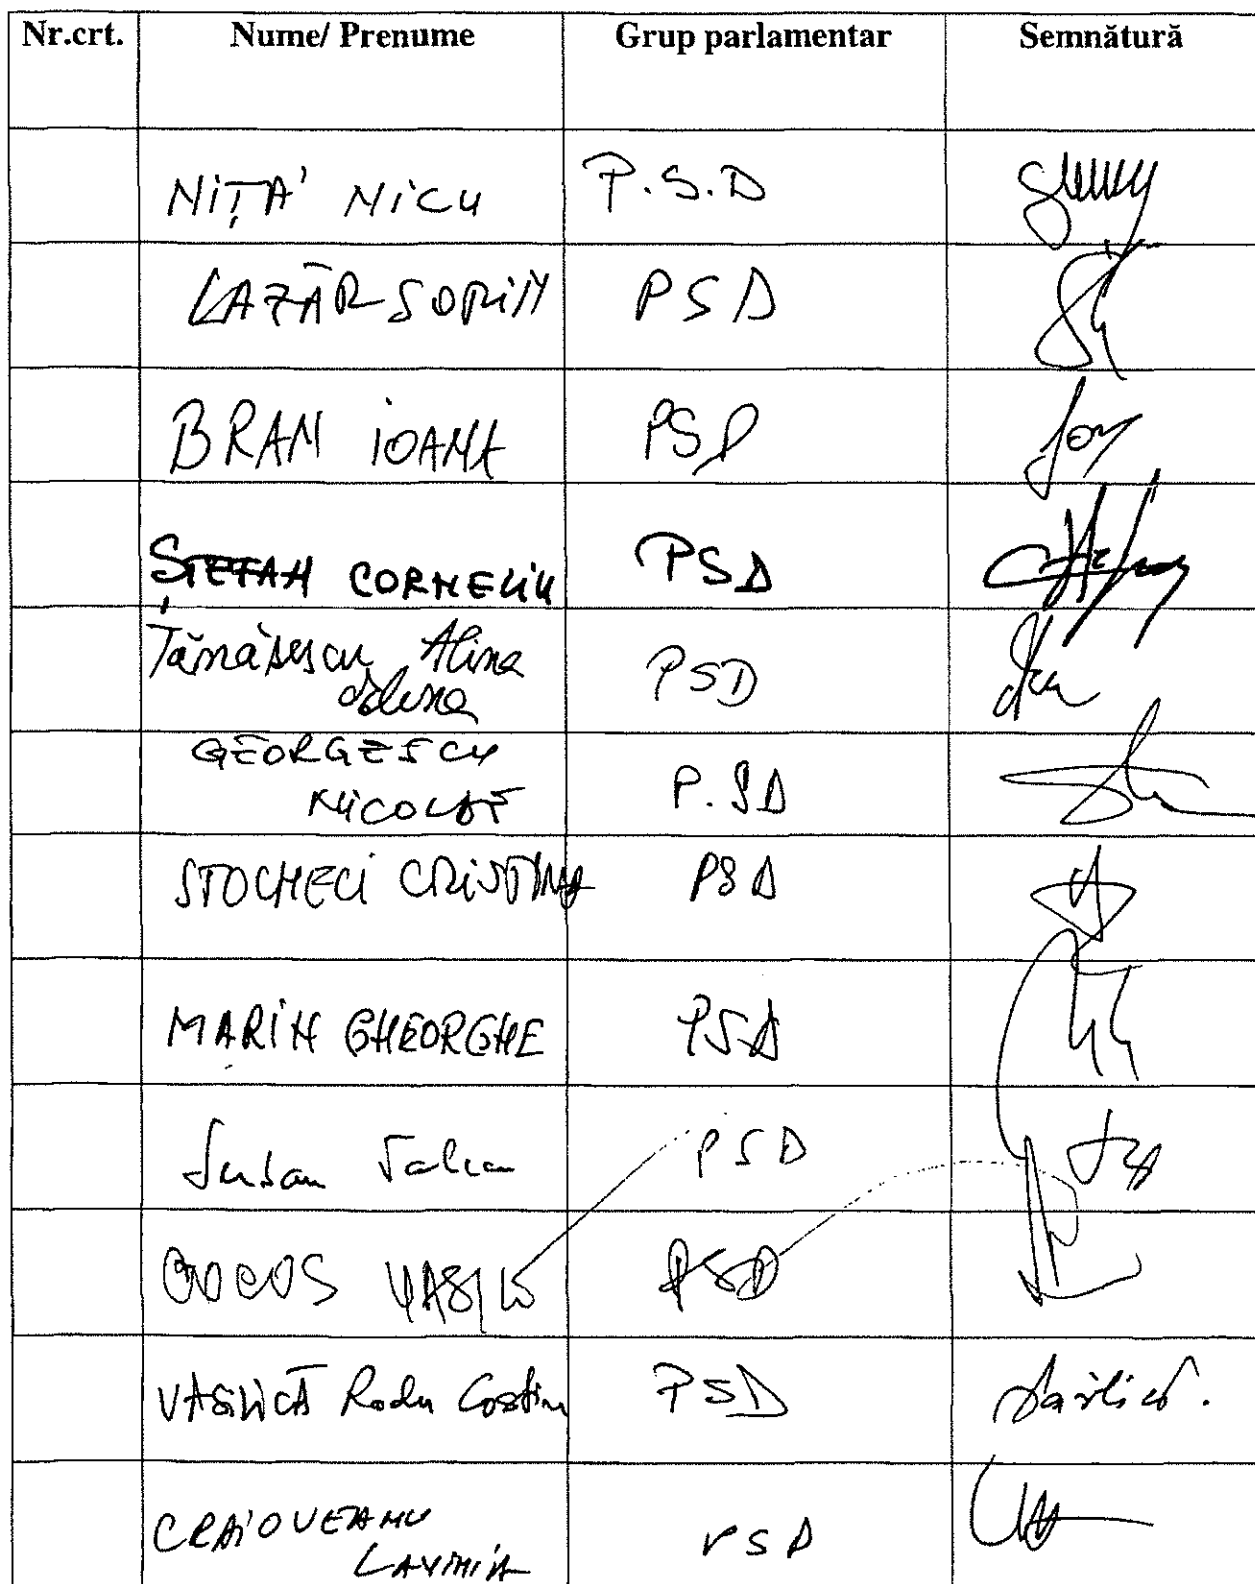 Nr.crt. Nume/ Prenume Grup parlamentar Semnătură
NIȚĂ NICU P.S.D
LAZĂR SORIN PSD
BRAN IOANA PSD
ȘTEFAN CORNELIU PSD
Tănăsescu Alina PSD
GEORGESCU
NICOLAE P.SD
STOCHECI CRISTINA PSD
MARIN GHEORGHE PSD
PSD
COCOȘ VASILE PSD
VASILICĂ Radu Costin PSD Vasilică.
CRAIOVEANU
LAVINIA PSD